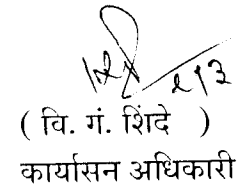 २१३
( वि. गं. शिंदे )
कार्यासन अधिकारी